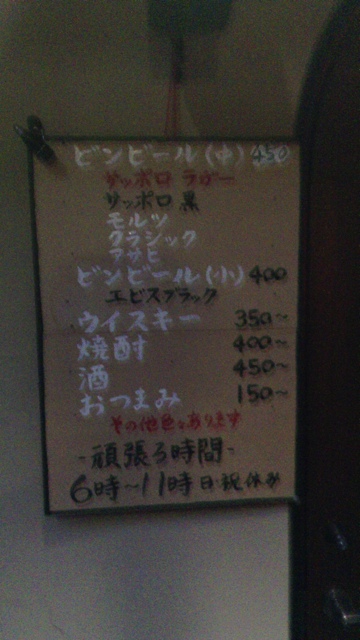 ビンビール(中) 450
サッポロ ラガー
サッポロ 黒
モルツ
クラシック
アサヒ
ビンビール(小) 400
エビスブラック
ウイスキー 350～
焼酎 400～
酒 450～
おつまみ 150～
その他色々あります
-頑張る時間-
6時～11時 日・祝 休み